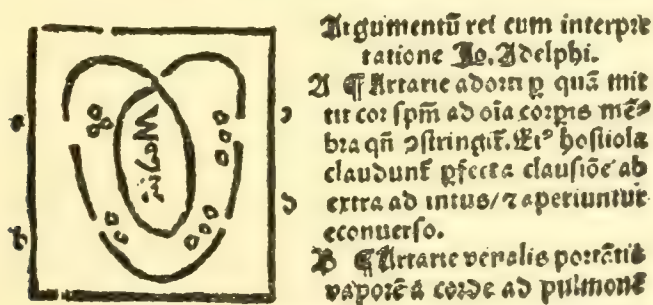 a
b
c
d
Argumentū rei cum interpre
tatione Jo. Adelphi.
A ¶ Artarie adorti ꝑ quā mit
tit cor spm̄ ad oīa corpis mē
bra qn̄ ꝯstringit̄. Eiꝰ hostiola
claudunt̄ ꝑfecta clausiōe ab
extra ad intus/⁊ aperiuntur
econuerso.
B ¶ Artarie venalis portātis
vaporē a corde ad pulmonē